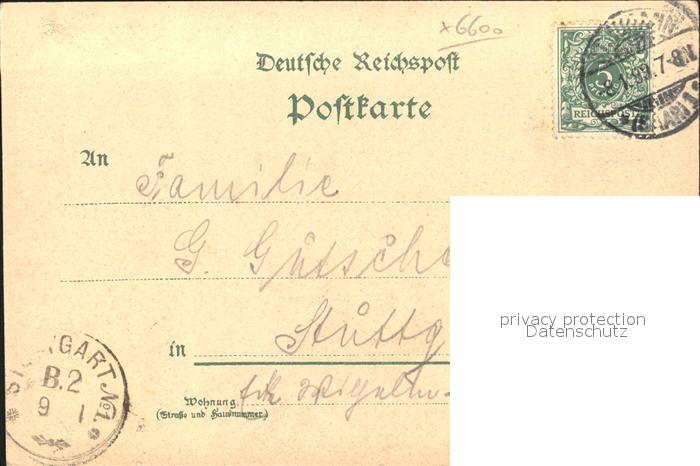 x6600
Deutsche Reichspost
Postkarte
5
REICHSPOST
8.1.99.7-8N.
An
Familie
G. Gutsche
in Stuttg
Wohnung
(Straße und Hausnummer)
STUTTGART No1.
B.2
9 1
privacy protection
Datenschutz